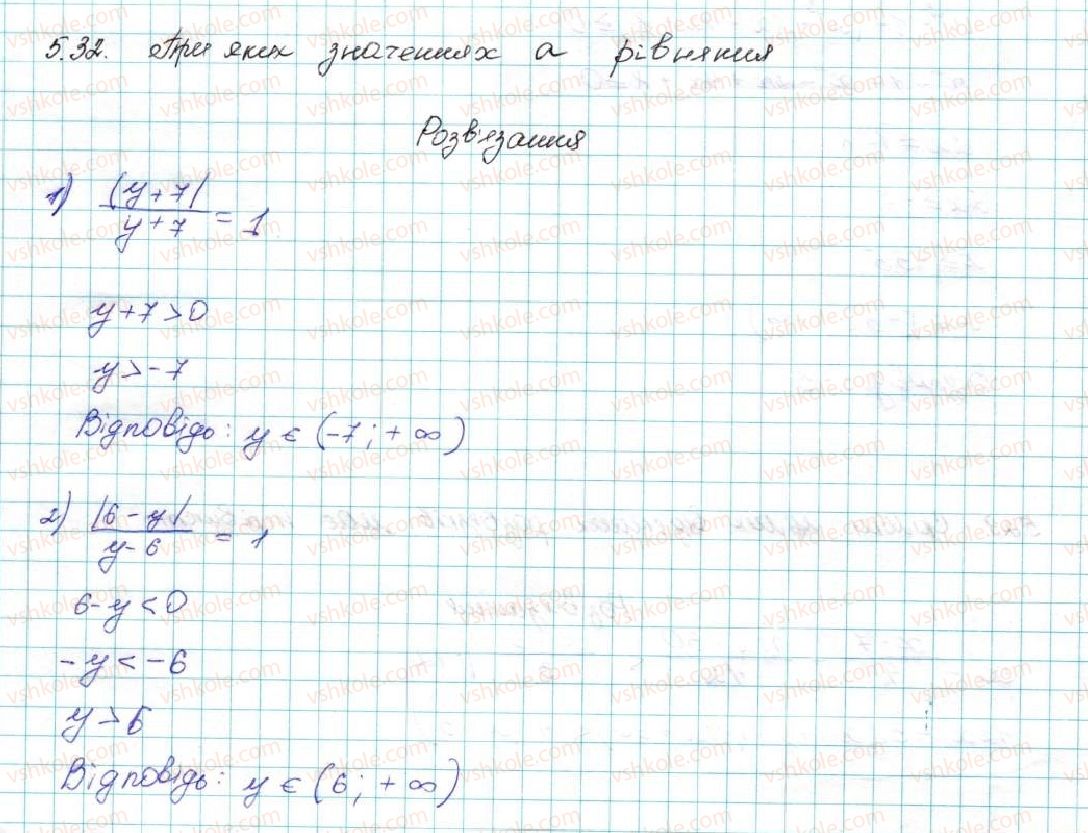 5.32. При яких значеннях а рівняння
Розв'язання
1) |y+7| / y+7 = 1
y+7>0
y>-7
Відповідь: y ∈ (-7; +∞)
2) |6-y| / y-6 = 1
6-y<0
-y<-6
y>6
Відповідь: y ∈ (6; +∞)
vshkole.com